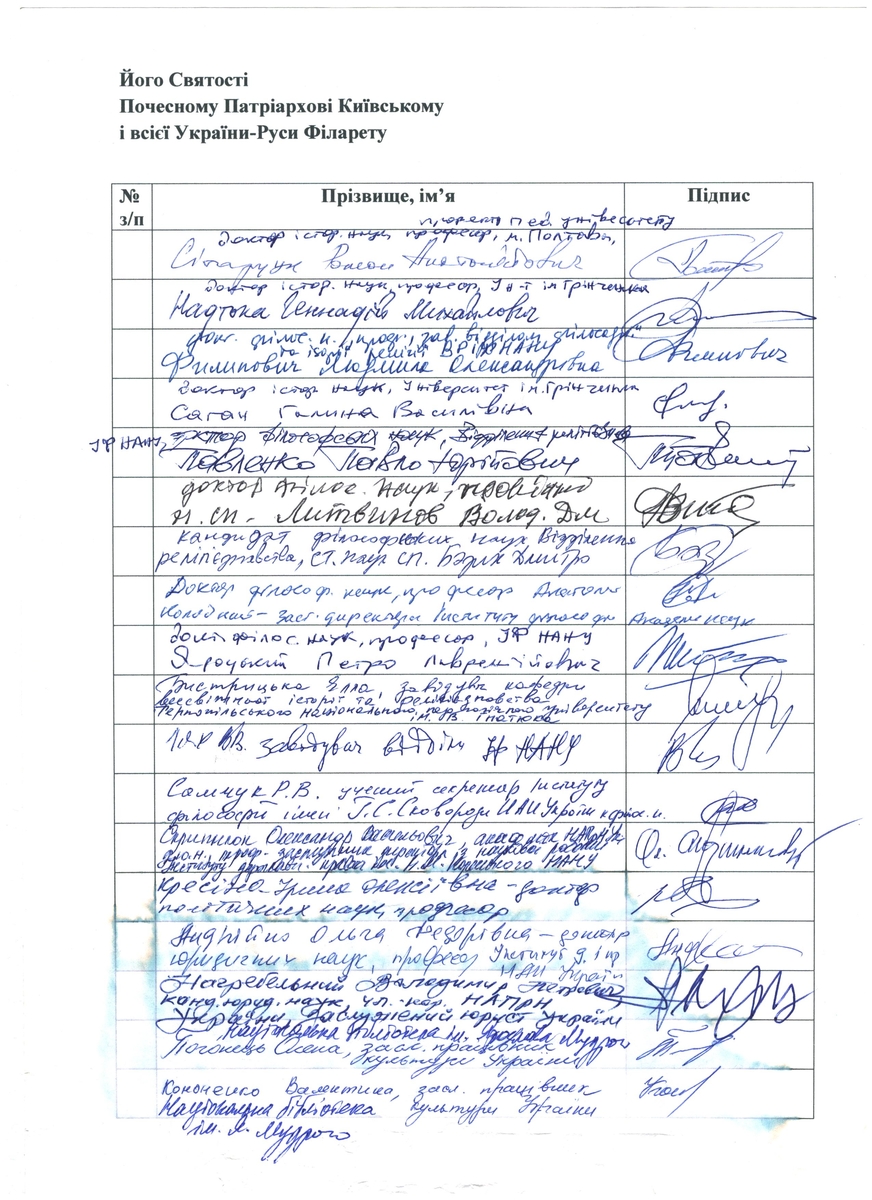 Його Святості
Почесному Патріархові Київському
і всієї України-Руси Філарету
№ з/п
Прізвище, ім’я
Підпис
пед. університету
доктор істор. наук, професор, м. Полтава,
Анатолійович
доктор істор. наук, професор, Ін-т ім Грінченка
Надтока Геннадій Михайлович
філос. н., проф., зав. відділом філософії
та історії релігії ВР ІФ НАНУ
Филипович Людмила Олександрівна
доктор істор наук, Університет ім. Грінченка
Саган Галина Василівна
ІФ НАНУ, доктор філософських наук, Відділення релігієзнав
Павленко Павло Юрійович
доктор філос. наук, провідний
н. сп. Литвинов Волод. Дм
кандидат філософських наук Відділення
релігієзнавства, ст. наук сп. Базик Дмитро
Доктор філософ. наук, професор Анатолій
Колодний – заст. директора Інституту філософії Академії наук
докт філос. наук, професор, ІФ НАНУ
Яроцький Петро Лаврентійович
Бистрицька Елла, завідувач кафедри
всесвітньої історії та релігієзнавства
Тернопільського національного педагогічного університету
ім. В. Гнатюка
завідувач відділу ІФ НАНУ
Самчук Р.В. учений секретар Інституту
філософії імені Г.С. Сковороди НАН України к.філос.н.
Скрипнюк Олександр Васильович, академік НАПрН
д.ю.н., проф. заступник директора з наукової роботи
Інституту держави і права ім. В.М. Корецького НАНУ
Кресіна Ірина Олексіївна – доктор
політичних наук, професор
Андрійко Ольга Федорівна – доктор
юридичних наук, професор Інститут д. і пр
НАН України
Нагребельний Володимир Петрович
канд. юрид. наук, чл.-кор. НАПрН
України, Заслужений юрист України
Національна бібліотека ім. Ярослава Мудрого
Олена, засл. працівник
культури України
Кононенко Валентина, засл. працівник
Національна бібліотека культури України
ім. Я. Мудрого